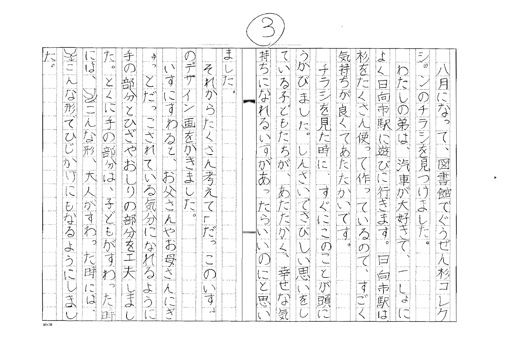 3
八月になって、図書館でぐうぜん杉コレク
ションのチラシを見つけました。
わたしの弟は、汽車が大好きで、一しょに
よく日向市駅に遊びに行きます。日向市駅は
杉をたくさん使って作っているので、すごく
気持ちが良くてあたたかいです。
チラシを見た時に、すぐにこのことが頭に
うかびました。しんさいでさびしい思いをし
ている子どもたちが、あたたかく、幸せな気
持ちになれるいすがあったらいいのにと思い
ました。
それからたくさん考えて「だっこのいす」
のデザイン画をかきました。
いすにすわると、お父さんやお母さんにぎ
ゅっとだっこされている気分になれるように
手の部分とひざやおしりの部分を工夫しまし
た。とくに手の部分は、子どもがすわった時
には、こんな形、大人がすわった時には、
こんな形でひじかけにもなるようにしまし
た。